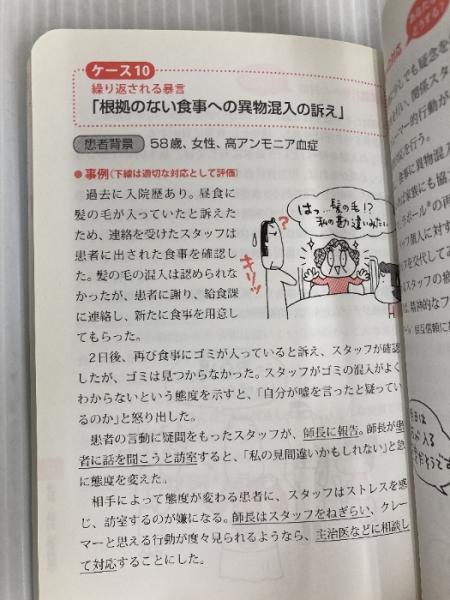 ケース10
繰り返される暴言
「根拠のない食事への異物混入の訴え」
患者背景 58歳、女性、高アンモニア血症
●事例（下線は適切な対応として評価）
過去に入院歴あり。昼食に
髪の毛が入っていたと訴えた
ため、連絡を受けたスタッフは
患者に出された食事を確認し
た。髪の毛の混入は認められな
かったが、患者に謝り、給食課
に連絡し、新たに食事を用意し
てもらった。
はっ…髪の毛!?
私の勘違いみたい…
?
キーッ
2日後、再び食事にゴミが入っていると訴え、スタッフが確認
したが、ゴミは見つからなかった。スタッフがゴミの混入がよく
わからないという態度を示すと、「自分が嘘を言ったと疑ってい
るのか」と怒り出した。
患者の言動に疑問をもったスタッフが、師長に報告。師長が患
者に話を聞こうと訪室すると、「私の見間違いかもしれない」と急
に態度を変えた。
相手によって態度が変わる患者に、スタッフはストレスを感
じ、訪室するのが嫌になる。師長はスタッフをねぎらい、クレー
マーと思える行動が度々見られるようなら、主治医などに相談し
て対応することにした。
どうする?
でも疑念を
行い、関係スタ
マー的行動が
応を行う。
食事に異物混入
は家族にも協
ラポール®の再
ッフ個人に対す
フを交代してみ
スタッフの疲
、精神的なフ
相互信頼に基